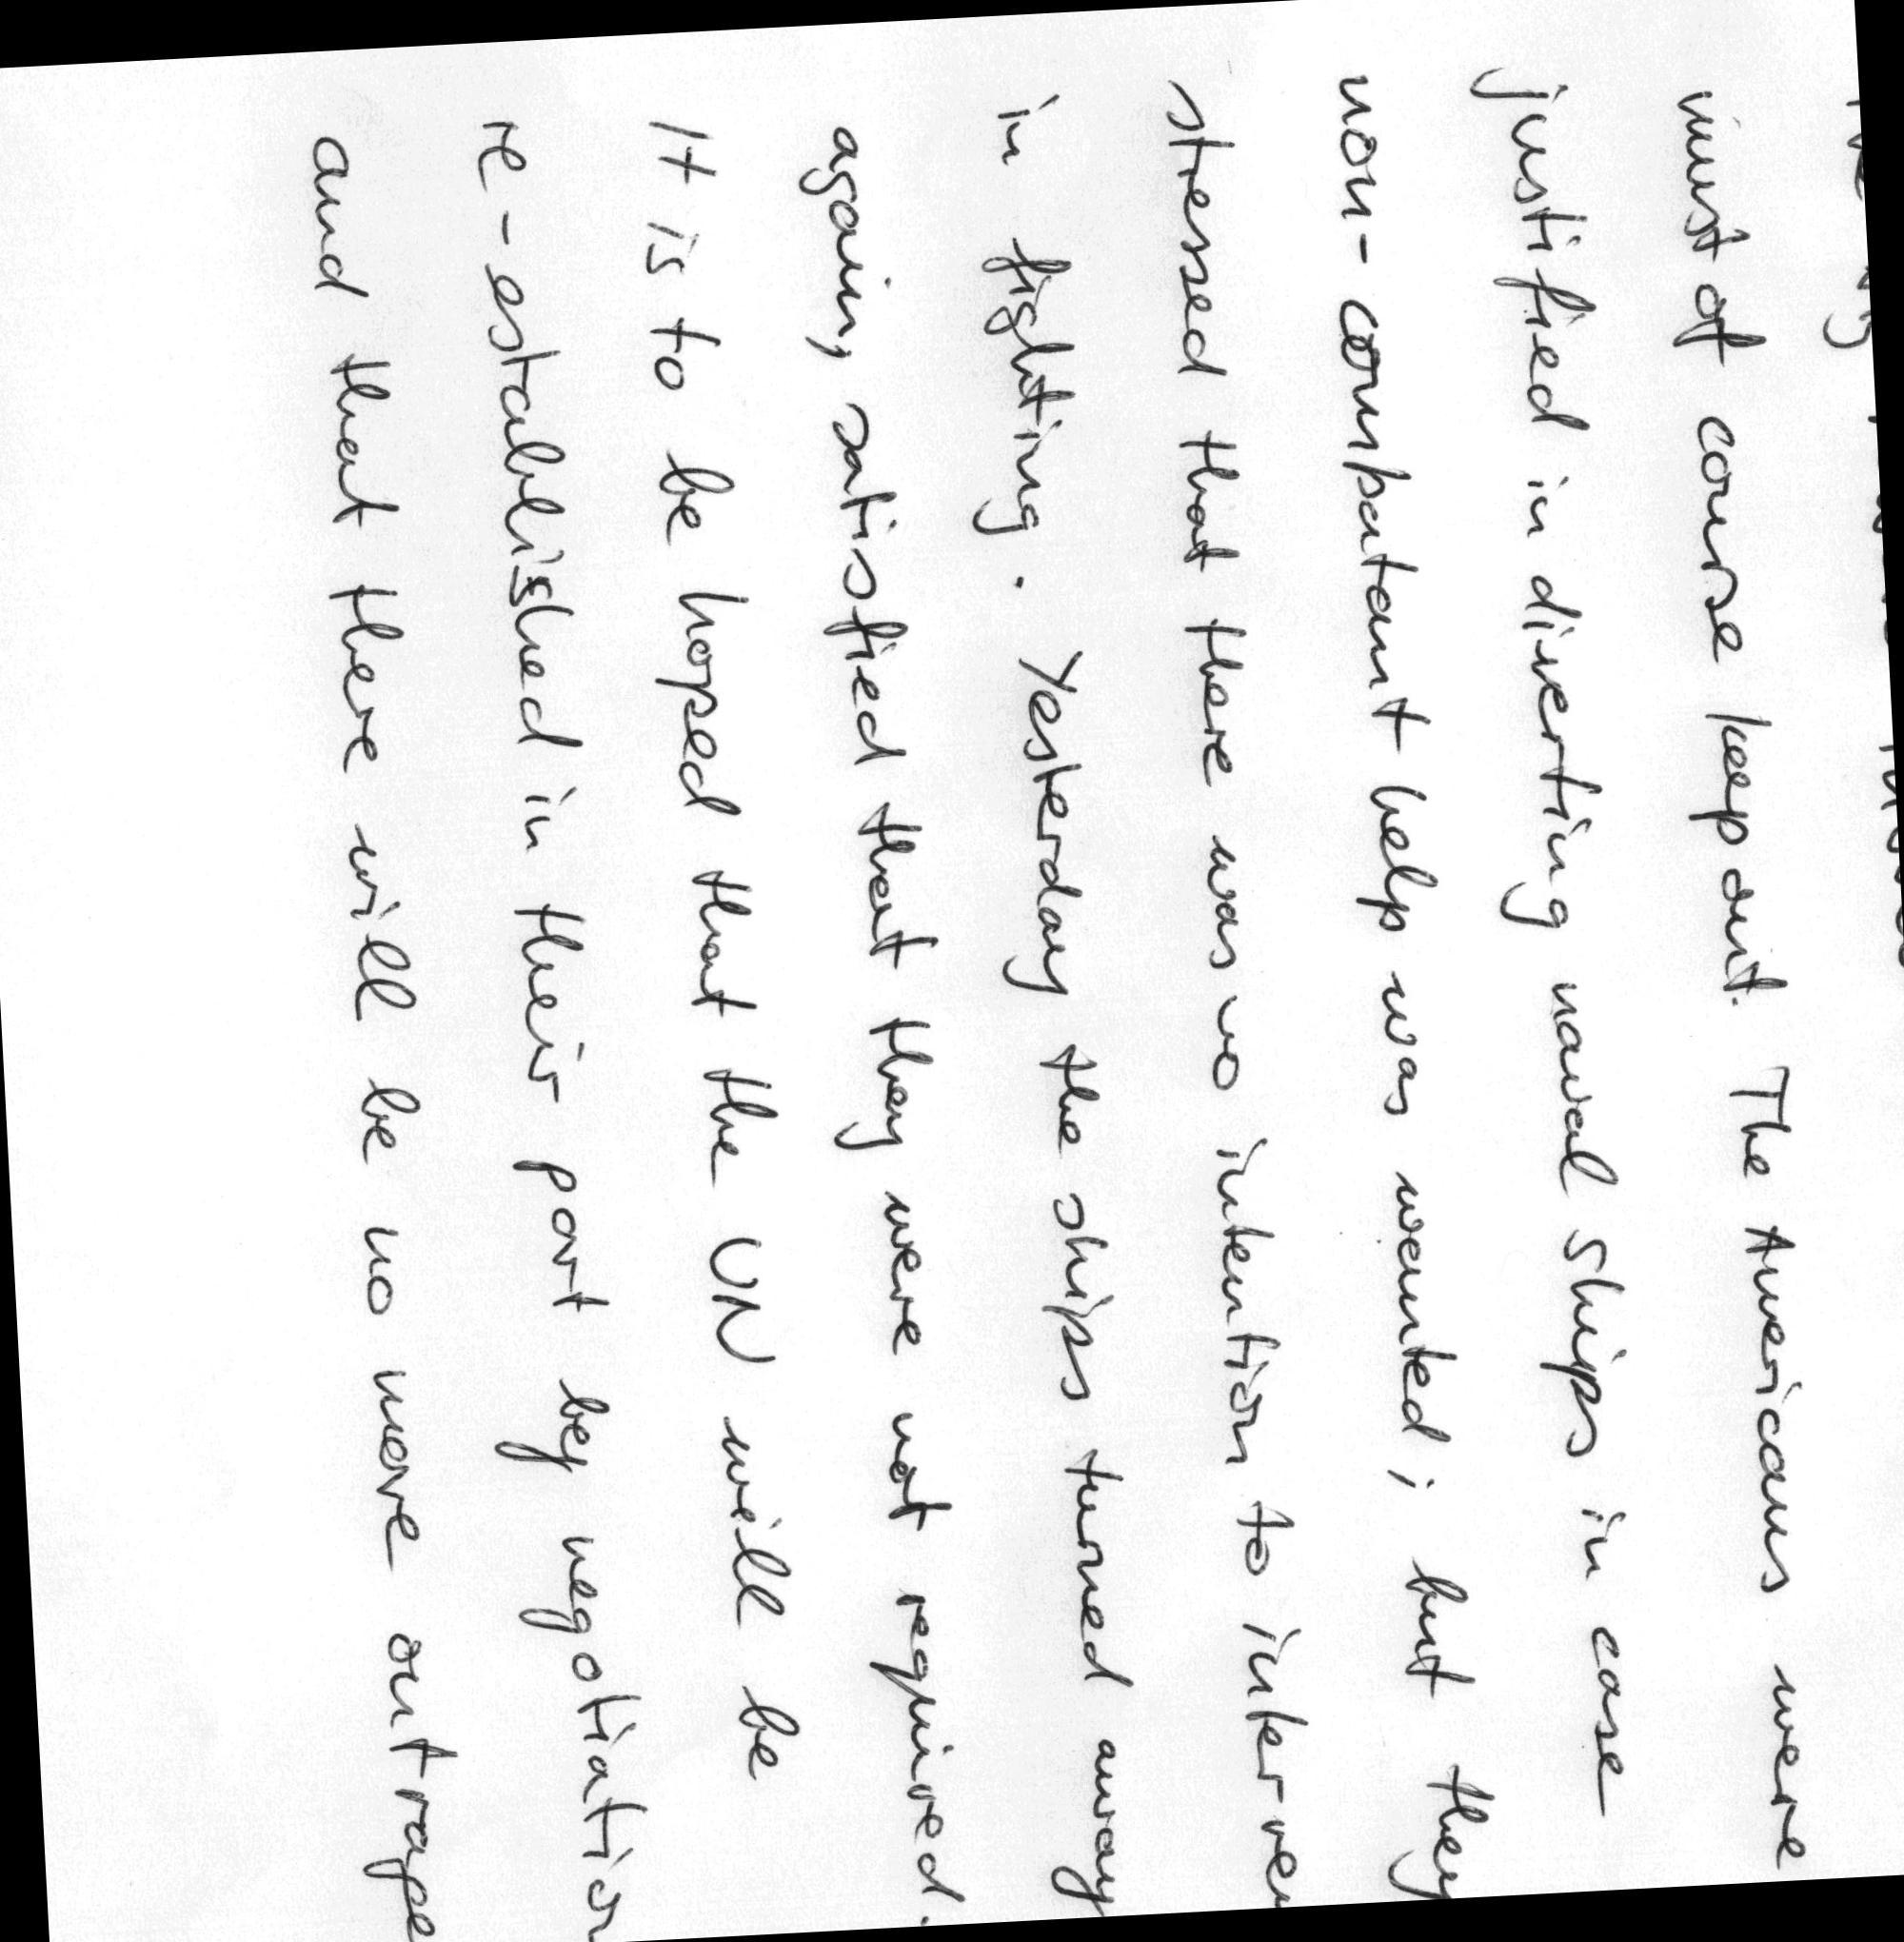 must of course keep out. The Americans were
justified in diverting naval ships in case
non-compatant help was wanted; but they
stressed that there was no intention to interven
in fighting. Yesterday the ships turned away
again, satisfied that they were not required.
It is to be hoped that the UN will be
re-established in their port by negotiation
and that there will be no more outrage